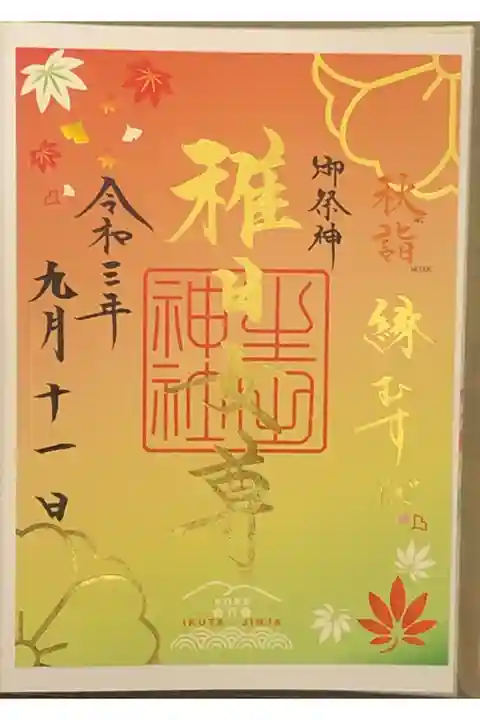 秋詣
縁むすび
御祭神
稚日女尊
生田
神社
令和三年
九月十一日
KOBE
IKUTA JINJA